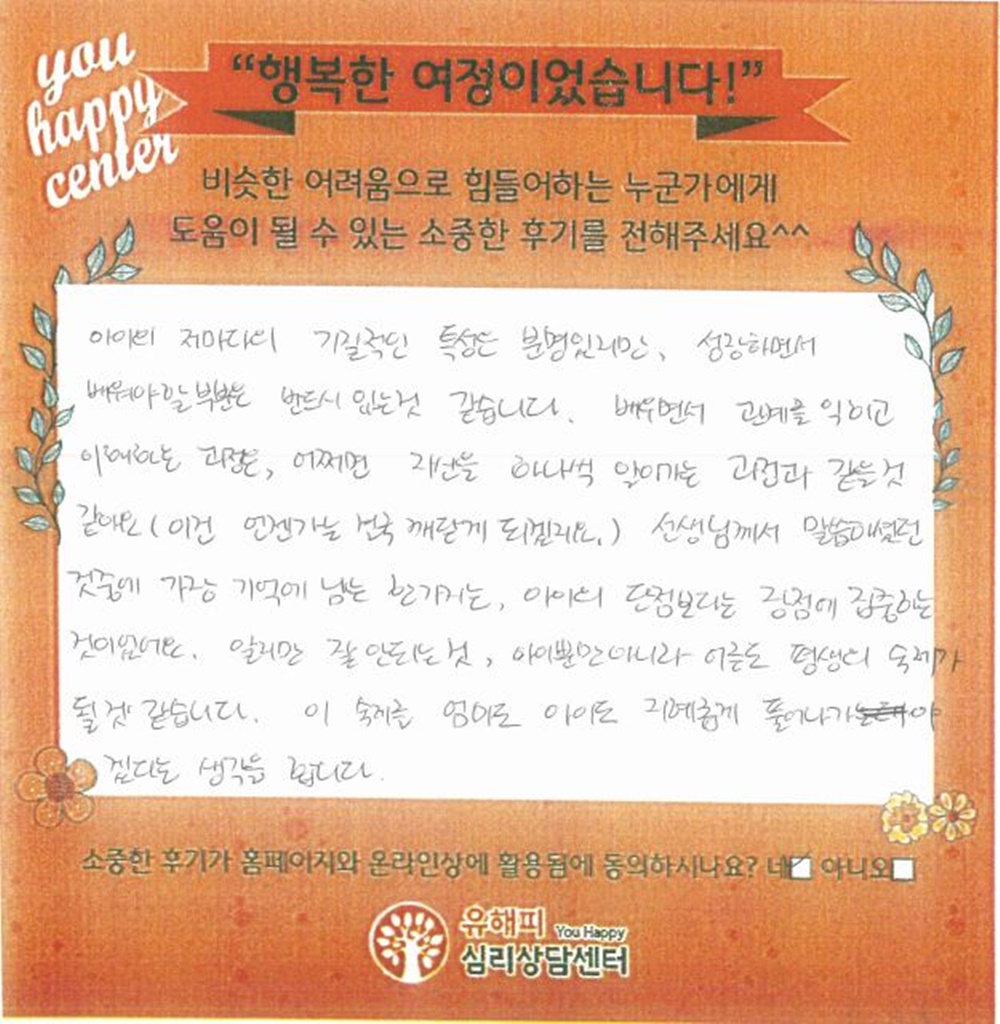 you
happy
center
“행복한 여정이었습니다!”
비슷한 어려움으로 힘들어하는 누군가에게
도움이 될 수 있는 소중한 후기를 전해주세요^^
아이의 저마다의 기질적인 특성은 분명있지만, 성장하면서
배워야할 부분은 반드시 있는것 같습니다. 배우면서 관계를 익히고
이해하는 과정은, 어쩌면 자신을 하나씩 알아가는 과정과 같을것
같아요 (이건 언젠가는 결국 깨닫게 되겠지요.) 선생님께서 말씀하셨던
것중에 가장 기억에 남는 한가지는, 아이의 단점보다는 강점에 집중하는
것이었어요. 알지만 잘 안되는것, 아이뿐만아니라 어른도 평생의 숙제가
될것 같습니다. 이 숙제를 엄마도 아이도 지혜롭게 풀어나가야
겠다는 생각을 합니다.
소중한 후기가 홈페이지와 온라인상에 활용됨에 동의하시나요? 네 아니오
유해피 You Happy
심리상담센터